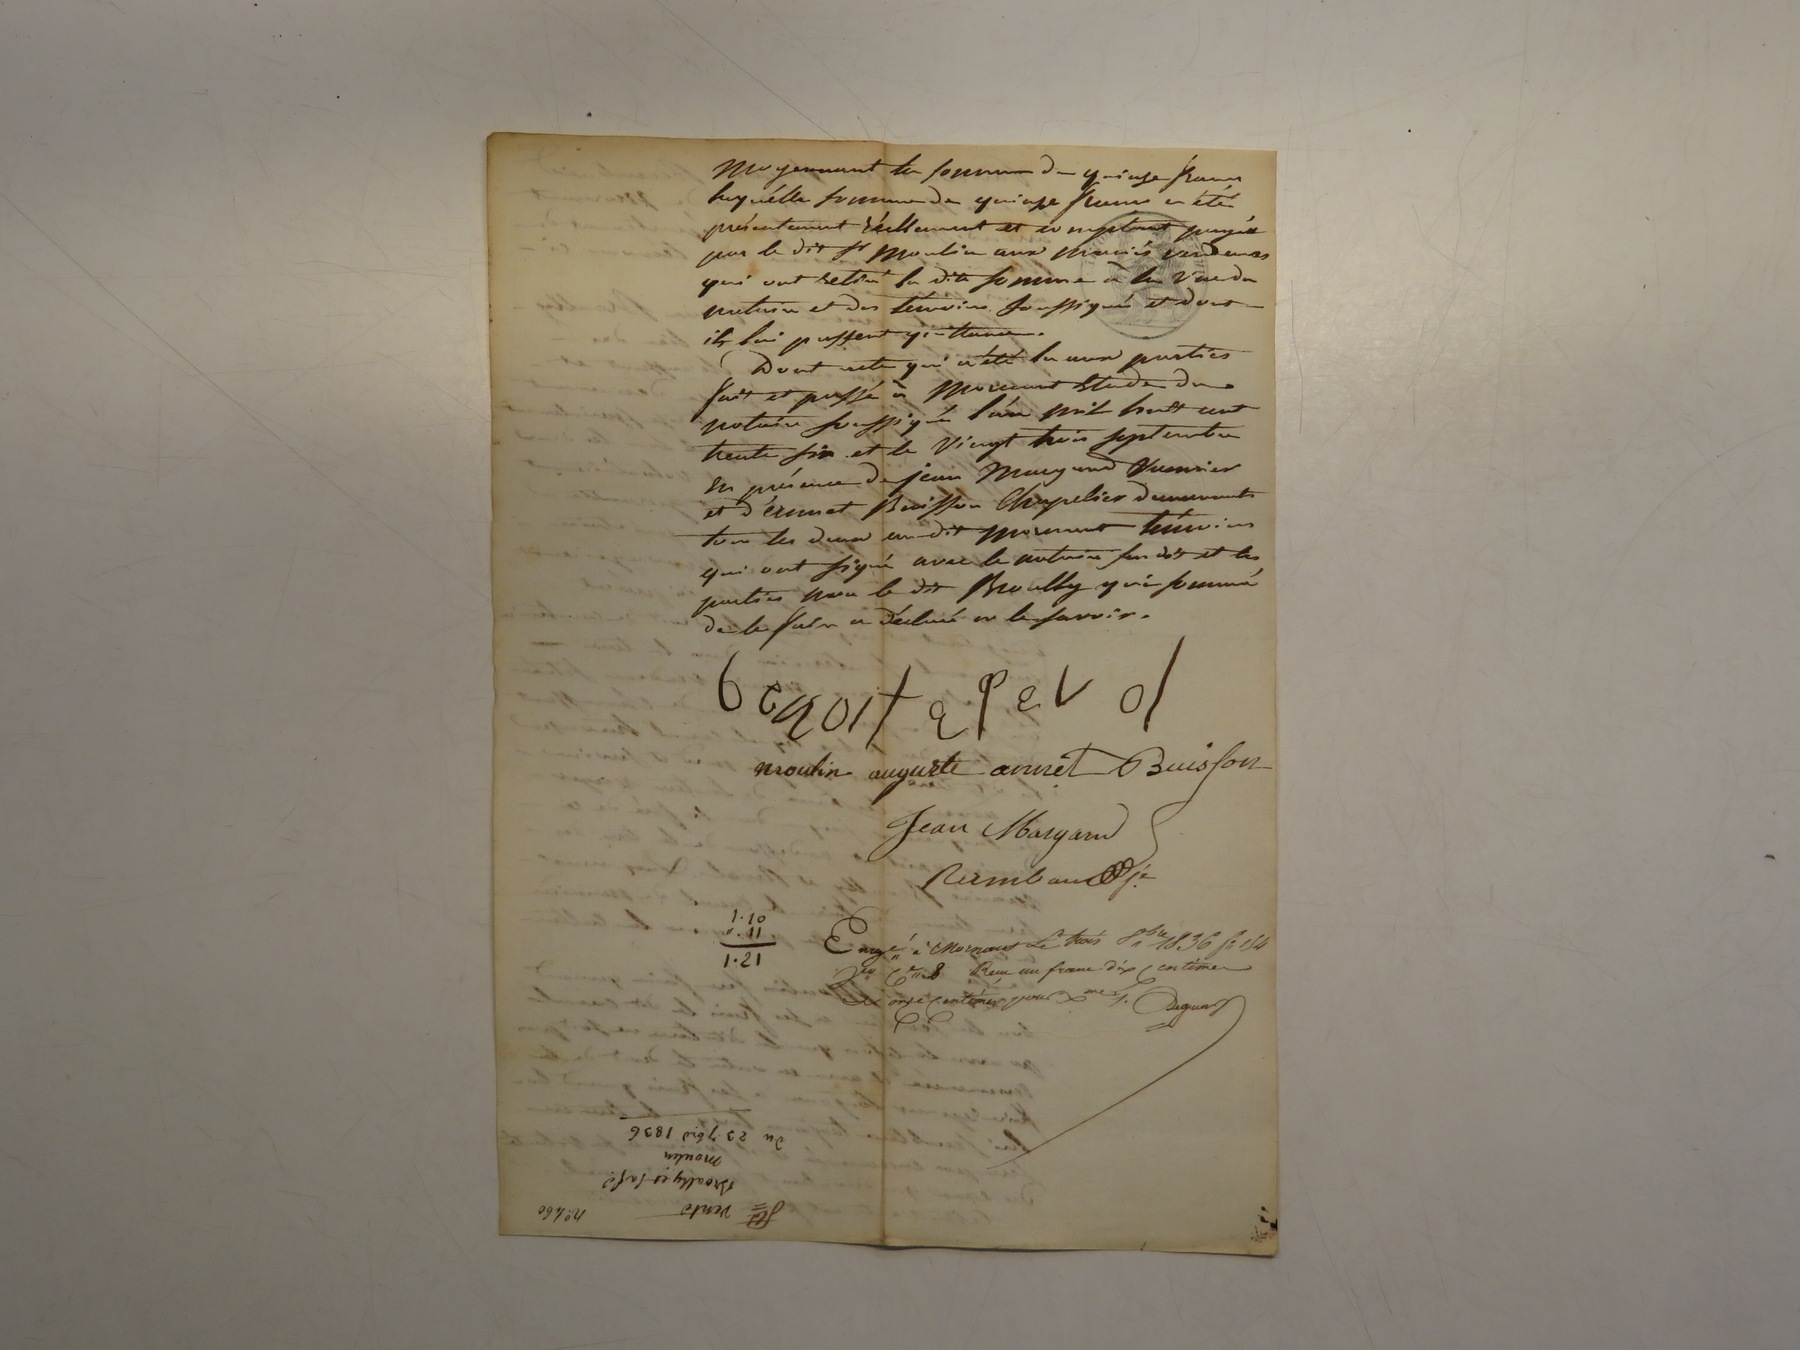 Moyennant la somme de quinze francs
laquélle somme de quinze francs a été
présentement réellement et comptant payée
par le dit Sr Moulin aux mariés vendeurs
qui ont retiré la dite somme à la vue du
notaire et des témoins soussignés et dont
ils lui passent quittance.
Dont acte qui a été lu aux parties
fait et passé à Mornant Etude du
notaire soussigné l'an mil huit cent
trente six et le vingt trois septembre
en présence de jean Margand
et d'ennet Buisson Chapelier demeurants
tous les deux au dit Mornant témoins
qui ont signé avec le notaire sus dit et les
parties non le dit Broally qui sommé
de le faire a déclaré ne le savoir.
moulin auguste annet Buisson
Jean Margand
1.10
".11
1.21
Engé à Mornant Le trois 8bre 1836 f°
Cse 8 Reçu un franc dix centimes
et onze centimes pour Dme
n° 460
Vente
Broally
Moulin
Du 23 7bre 1836